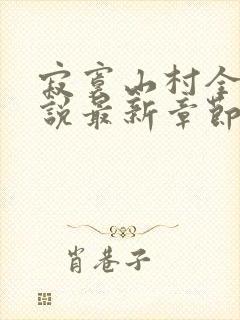 寂寞山村全
說最新章節
肖巷子